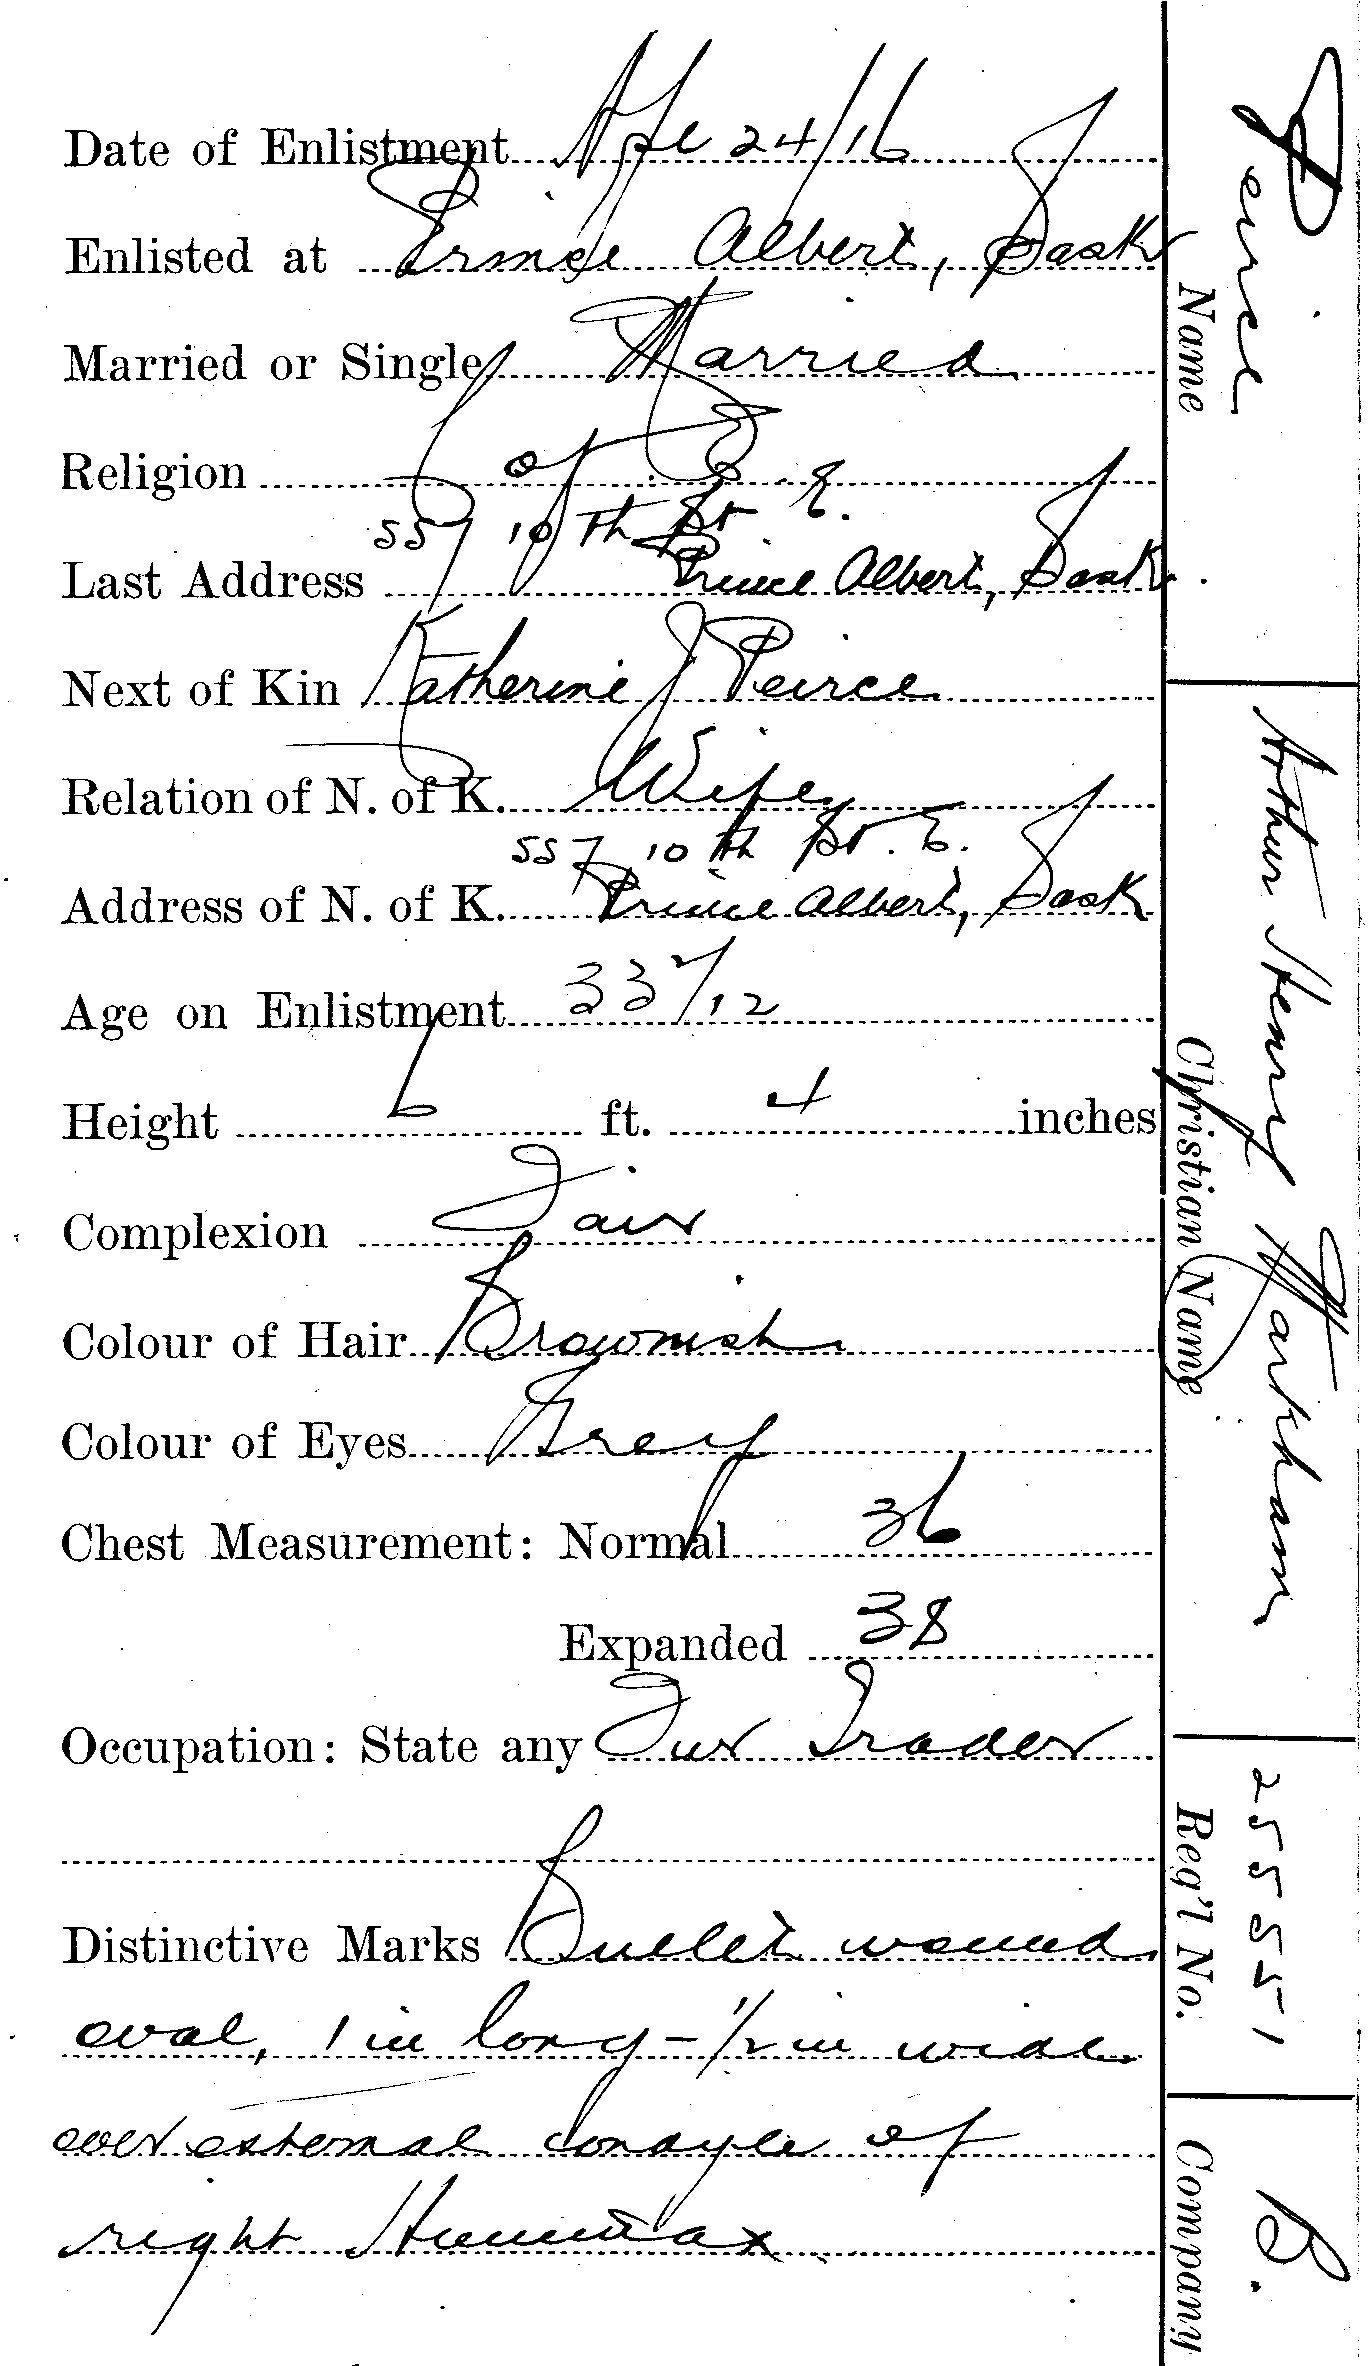 Date of Enlistment Apl 24/16
Enlisted at Prince Albert, Sask
Married or Single Married
Religion C of E
557 10th St E.
Last Address Prince Albert, Sask.
Next of Kin Katherine J Peirce
Relation of N. of K. Wife
557 10th St. E.
Address of N. of K. Prince Albert, Sask
Age on Enlistment 33 7/12
Height 6 ft. 4 inches
Complexion Fair
Colour of Hair Brownish
Colour of Eyes Grey
Chest Measurement: Normal 36
Expanded 38
Occupation: State any Fur Trader
Distinctive Marks Bullet wound
oval, 1 in long - 1/2 in wide
over external condyle of
right
Peirce
Name
Arthur Henry Markham
Christian Name
255551
Reg'l No.
B.
Company